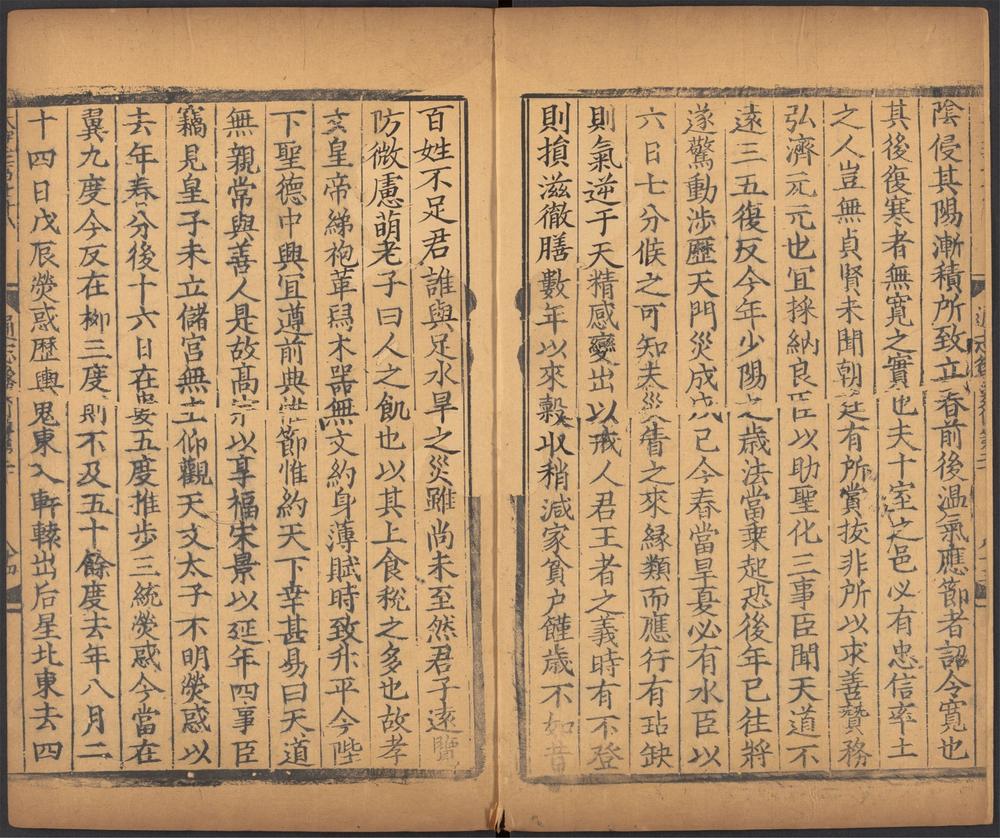 陰侵其陽漸積所致立春前後溫氣應節者詔令寬也
其後復寒者無寬之實也夫十室之邑必有忠信率土
之人豈無貞賢未聞朝廷有所賞拔非所以求善贊務
弘濟元元也宜採納良臣以助聖化三事臣聞天道不
遠三五復反今年少陽之歲法當乗起恐後年已往將
遂驚動涉歷天門災成戊己今春當旱夏必有水臣以
六日七分候之可知夫災眚之來緣類而應行有玷缺
則氣逆于天精感變出以戒人君王者之義時有不登
則損滋徹膳數年以來穀收稍減家貧户饉歲不如昔
百姓不足君誰與足水旱之災雖尚未至然君子逺覽
防微慮萌老子曰人之飢也以其上食稅之多也故孝
文皇帝綈袍革舄木器無文約身薄賦時致升平今陛
下聖德中興宜遵前典惟節惟約天下幸甚易曰天道
無親常與善人是故髙宗以享福宋景以延年四事臣
竊見皇子未立儲宮無主仰觀天文太子不明熒惑以
去年春分後十六日在婁五度推步三統熒惑今當在
翼九度今反在柳三度則不及五十餘度去年八月二
十四日戊辰熒惑歷輿鬼東入軒轅出后星北東去四